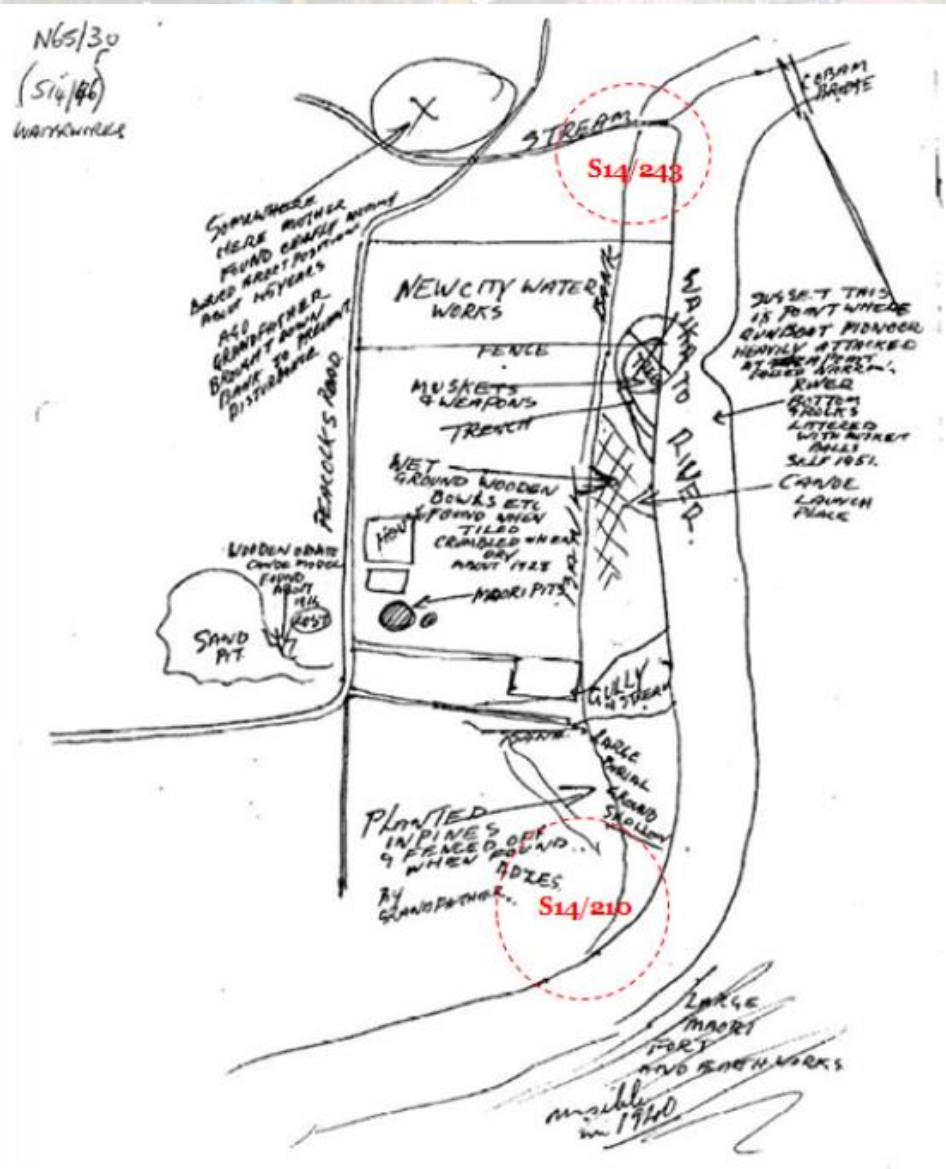 N65/30
(S14/46)
WATERWORKS
COBAM
BRIDGE
STREAM
S14/243
SOMEWHERE
HERE MOTHER
FOUND
BURIED POSITION
ABOUT 45 YEARS
AGO
GRANDFATHER
BROUGHT DOWN
BANK TO PREVENT
DISTURBANCE
PEACOCKS ROAD
NEW CITY WATER
WORKS
BANK
FENCE
MUSKETS
& WEAPONS
TRENCH
WAIKATO RIVER
SUGGEST THIS
IS POINT WHERE
GUNBOAT PIONEER
HEAVILY ATTACKED
AT
CALLED NARROWS
RIVER
BOTTOM
& ROCKS
LITTERED
WITH MUSKET
BALLS
SELF 1951.
CANOE
LAUNCH
PLACE
WET
GROUND WOODEN
BOWLS ETC
FOUND WHEN
TILED
CRUMBLED WHEN
DRY
ABOUT 1928
HOUSE
BANK
MAORI PITS
WOODEN ORNATE
CANOE MODEL
FOUND
ABOUT
SAND
PIT
GULLY
& STREAM
BANK
LARGE
BURIAL
GROUND
PLANTED
IN PINES
& FENCED OFF
WHEN FOUND..
BY
GRANDFATHER..
ADZES
S14/210
LARGE
MAORI
FORT
AND EARTHWORKS
visible
in 1940